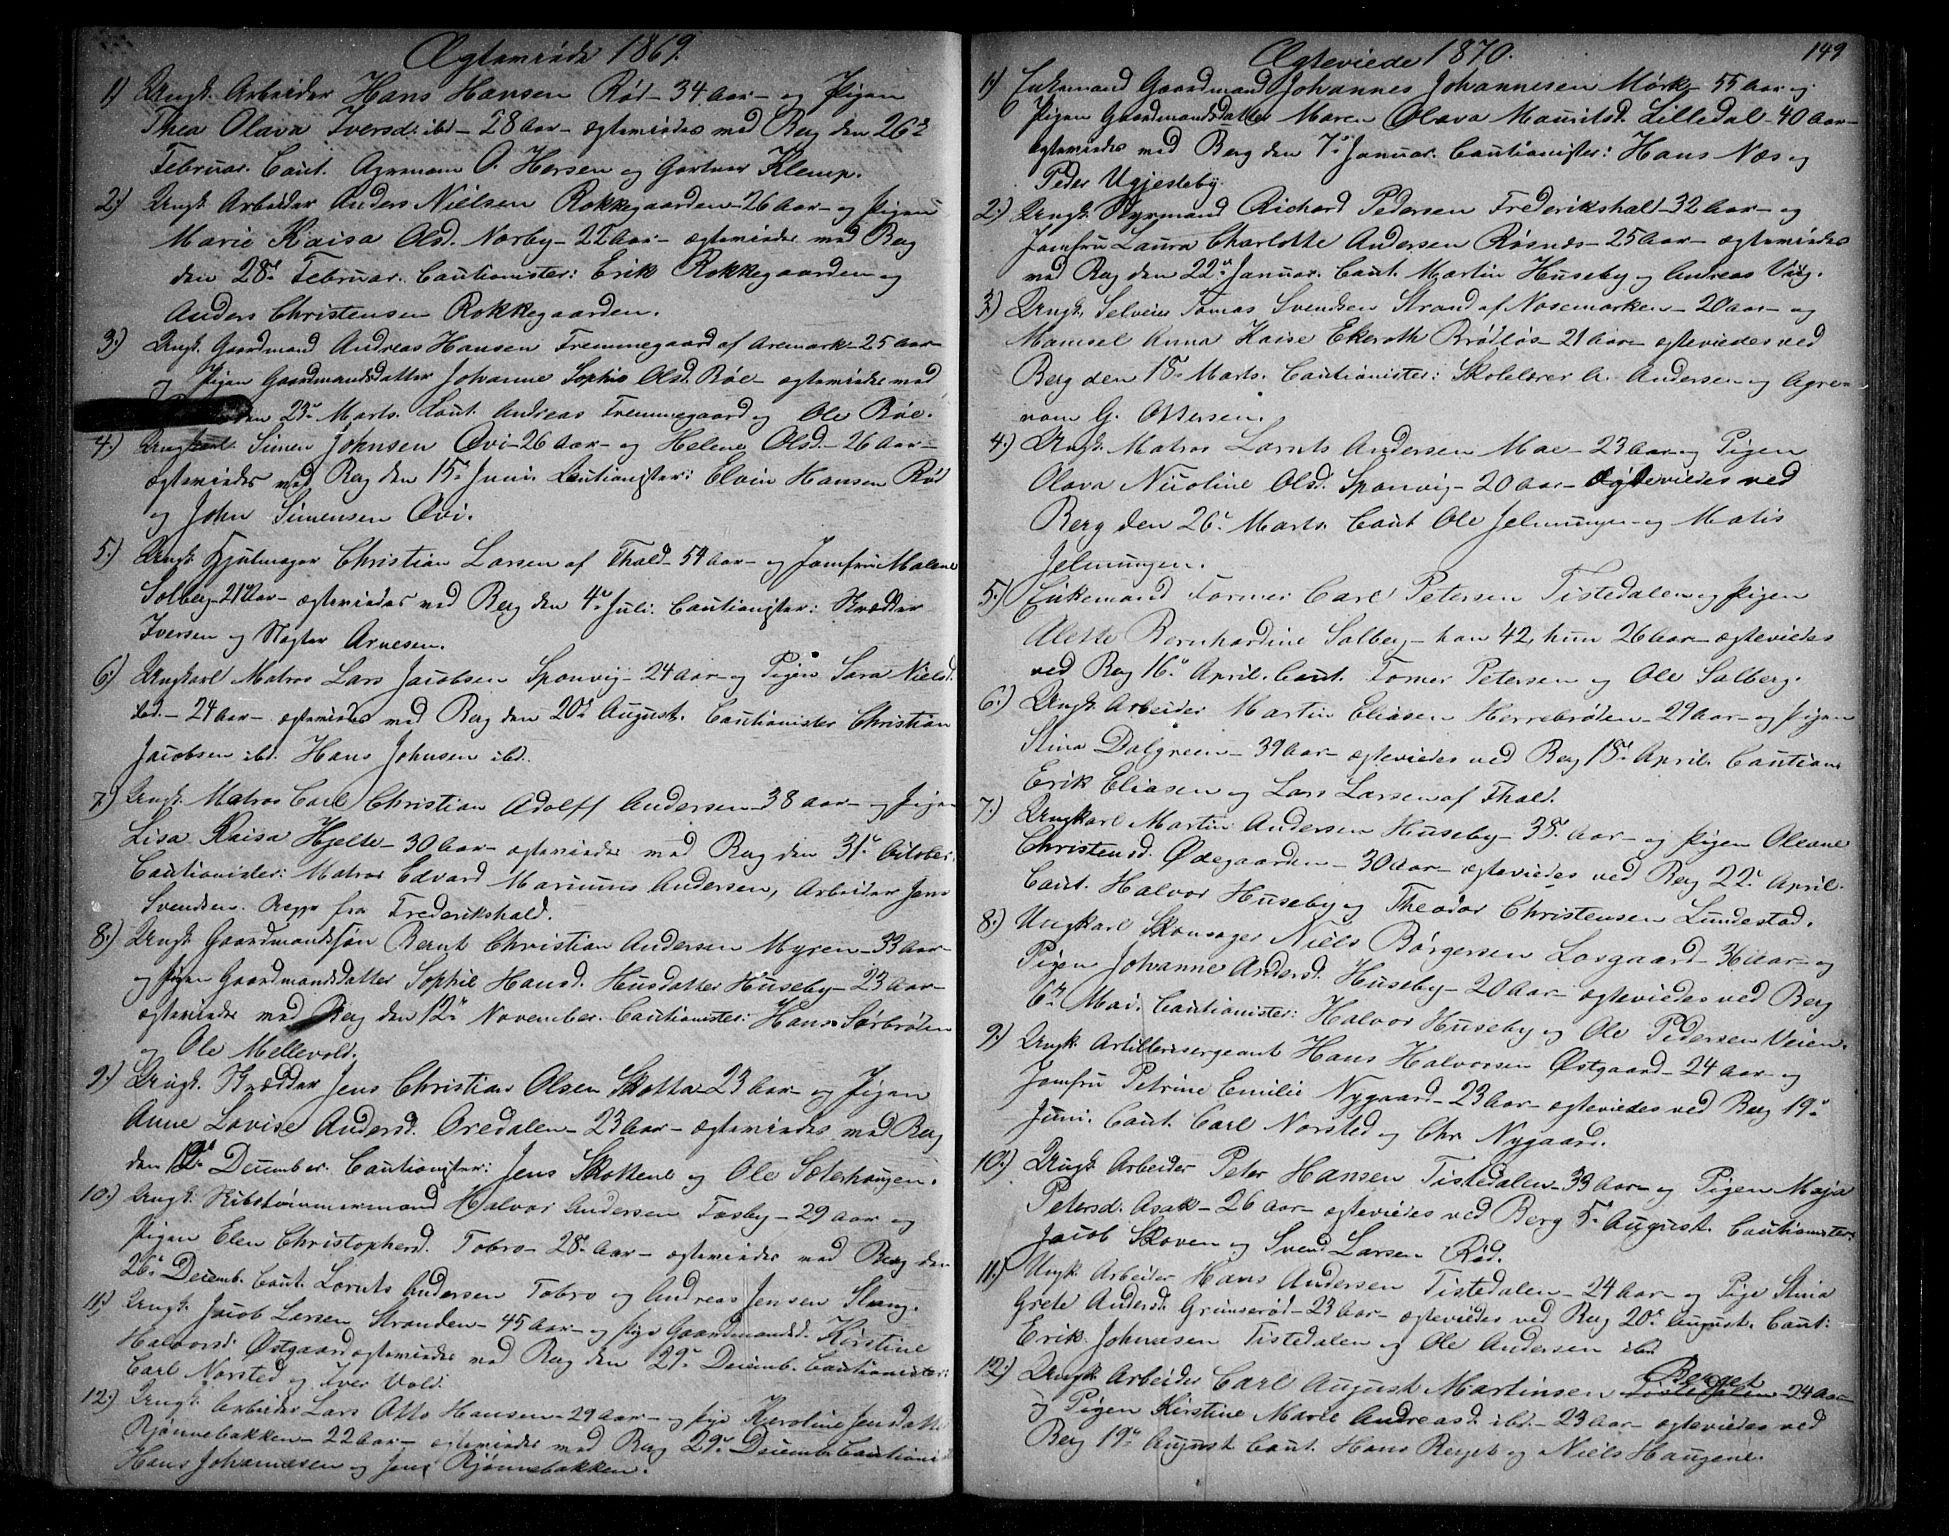 Ægteviede 1869.
1) Ungk. Arbeider Hans Hansen Rød - 34 Aar - og Pigen
Thea Olava Iversd. ibd - 28 Aar - ægteviedes ved Berg den 26de
Februar. Caut. Agronom O. Hersen og Gartner Klemp.
2.) Ungk. Arbeider Anders Nielsen Rokkegaarden - 26 Aar - og Pigen
Marie Kaisa Olsd. Norby - 22 Aar - ægteviedes ved Berg
den 28de Februar. Cautionister: Erik Rokkegaarden og
Anders Christensen Rokkegaarden.
3.) Ungk. Gaardmand Andreas Hansen Fremmegaard af Aremark - 25 Aar -
og Pigen Gaardmandsdatter Johanne Sophie Olsd. Røe - ægteviedes ved
den 23de Marts. Caut. Andreas Fremmegaard og Ole Røe.
4.) Ungkarl Simen Johnsen Ævi - 26 Aar - og Helene Olsd. - 26 Aar -
ægteviedes ved Berg den 15de Juni. Cautionister: Elvin Hansen Rød
og John Simensen Ævi.
5.) Ungk. Hjulmager Christian Larsen af Fhald - 54 Aar - og Jomfru Malene
Solberg - 21 Aar - ægteviedes ved Berg den 4de Juli. Cautionister: Skrædder
Iversen og Slagter Arnesen.
6.) Ungkarl Matros Lars Jacobsen Sponvig - 24 Aar - og Pigen Sara Nielsd.
ibd. - 24 Aar - ægteviedes ved Berg den 20de August. Cautionister Christian
Jacobsen ibd. Hans Johnsen ibd.
7.) Ungk. Matros Carl Christian Adolff Andersen - 38 Aar - og Pigen
Lisa Kaisa Hjelte - 30 Aar - ægteviedes ved Berg den 31te October.
Cautionister: Matros Edvard Mariuus Andersen, Arbeider Jens
Svendsen. Begge fra Frederikshald.
8.) Ungk. Gaardmandssøn Bernt Christian Andersen Myren - 33 Aar -
og Pigen Gaardmandsdatter Sophie Hansd. Husdatter Huseby - 23 Aar -
ægteviedes ved Berg den 12te November. Cautionister: Hans Sørbrøden
og Ole Mellevold.
9.) Ungk. Skrædder Jens Christian Olsen Skotta - 23 Aar - og Pigen
Anne Lovise Andersd. Oredalen - 23 Aar - ægteviedes ved Berg
den 12te December. Cautionister: Jens Skottene og Ole Sæterhaugen.
10.) Ungk. Skibstømmermand Halvor Andersen Fosby - 29 Aar og
Pigen Elen Christophersd. Tobro - 28 Aar - ægteviedes ved Berg den
26de Decemb. Caut. Lornts Andersen Tobro og Andreas Jensen Stang.
11.) Ungk. Jacob Larsen Stranden - 45 Aar - og Pige Gaardmandsd. Kirstine
Halvorsd. Østgaard ægteviedes ved Berg den 29de Decemb. Cautionister:
Carl Norsted og Iver Vold.
12.) Ungk. Arbeider Lars Otto Hansen - 29 Aar - og Pige Karoline Jensdatter
Rjønnebakken - 22 Aar - ægteviedes ved Berg 29de Decemb. Cautionist.
Hans Johannesen og Jens Rjønnebakken.
Ægteviede 1870.
149
1) Enkemand Gaardmand Johannes Johannesen Mørk - 55 Aar og
Pigen Gaardmandsdatter Maren Olava Mauritsd. Lilledal - 40 Aar -
ægteviedes ved Berg den 7de Januar. Cautionister: Hans Næs og
Peder Ugjesteby.
2.) Ungk. Styrmand Richard Pedersen Frederikshald - 32 Aar - og
Jomfru Laura Charlotte Andersen Røsnæs - 25 Aar - ægteviedes
ved Berg den 22de Januar. Caut. Martin Huseby og Andreas Viig.
3.) Ungk. Selveier Tomas Svendsen Strand af Nosemarken - 20 Aar - og
Mamsel Anna Kaise Ekeroth Brødløs - 21 Aar - ægteviedes ved
Berg den 18de Marts. Cautionister: Skolelærer A. Andersen og Agro-
nom G. Ottersen.
4.) Ungk. Matros Lornts Andersen Moe - 23 Aar og Pigen
Olava Nicoline Olsd. Sponvig - 20 Aar - ægteviedes ved
Berg den 26de Marts. Caut Ole Jelmungen og Matis
Jelmungen.
5.) Enkemand Former Carl Petersen Tistedalen og Pigen
Alette Bernhardine Solberg - han 42, hun 26 Aar - ægteviedes
ved Berg 16de April. Caut. Former Petersen og Ole Solberg.
6.) Ungk. Arbeider Martin Eliasen Herrebrøden - 29 Aar - og Pigen
Stina Dalgreen - 39 Aar - ægteviedes ved Berg 18de April. Caution.
Erik Eliasen og Lars Larsen af Fhald.
7.) Ungkarl Martin Andersen Huseby - 38 Aar - og Pigen Oleane
Christensd. Ødegaarden - 30 Aar - ægteviedes ved Berg 22de April.
Caut. Halvor Huseby og Theodor Christensen Lundestad.
8.) Ungkarl Skomager Niels Børgersen Losgaard - 36 Aar - og
Pigen Johanne Andersd. Huseby - 20 Aar - ægteviedes ved Berg
6te Mai. Cautionister: Halvor Huseby og Ole Pedersen Veien.
9.) Ungk. Artillerisergeant Hans Halvorsen Østgaard - 24 Aar - og
Jomfru Petrine Emilie Nygaard - 23 Aar - ægteviedes ved Berg 19de
Juni. Caut. Carl Norsted og Chr Nygaard.
10.) Ungk. Arbeider Peter Hansen Tistedalen - 33 Aar - og Pigen Maja
Petersd. Asak - 26 Aar - ægteviedes ved Berg 5te August. Cautionister:
Jacob Skoven og Svend Larsen Rød.
11.) Ungk. Arbeider Hans Andersen Tistedalen - 24 Aar - og Pige Stina
Grete Andersd. Grimserød - 23 Aar - ægteviedes ved Berg 20de August. Caut:
Erik Johnsen Tistedalen og Ole Andersen ibd
12.) Ungk. Arbeider Carl August Martinsen Berget - 24 Aar -
og Pigen Kirstine Marie Andreasd. ibd. - 23 Aar - ægteviedes ved
Berg 19de August Caut. Hans Berget og Niels Haugene.